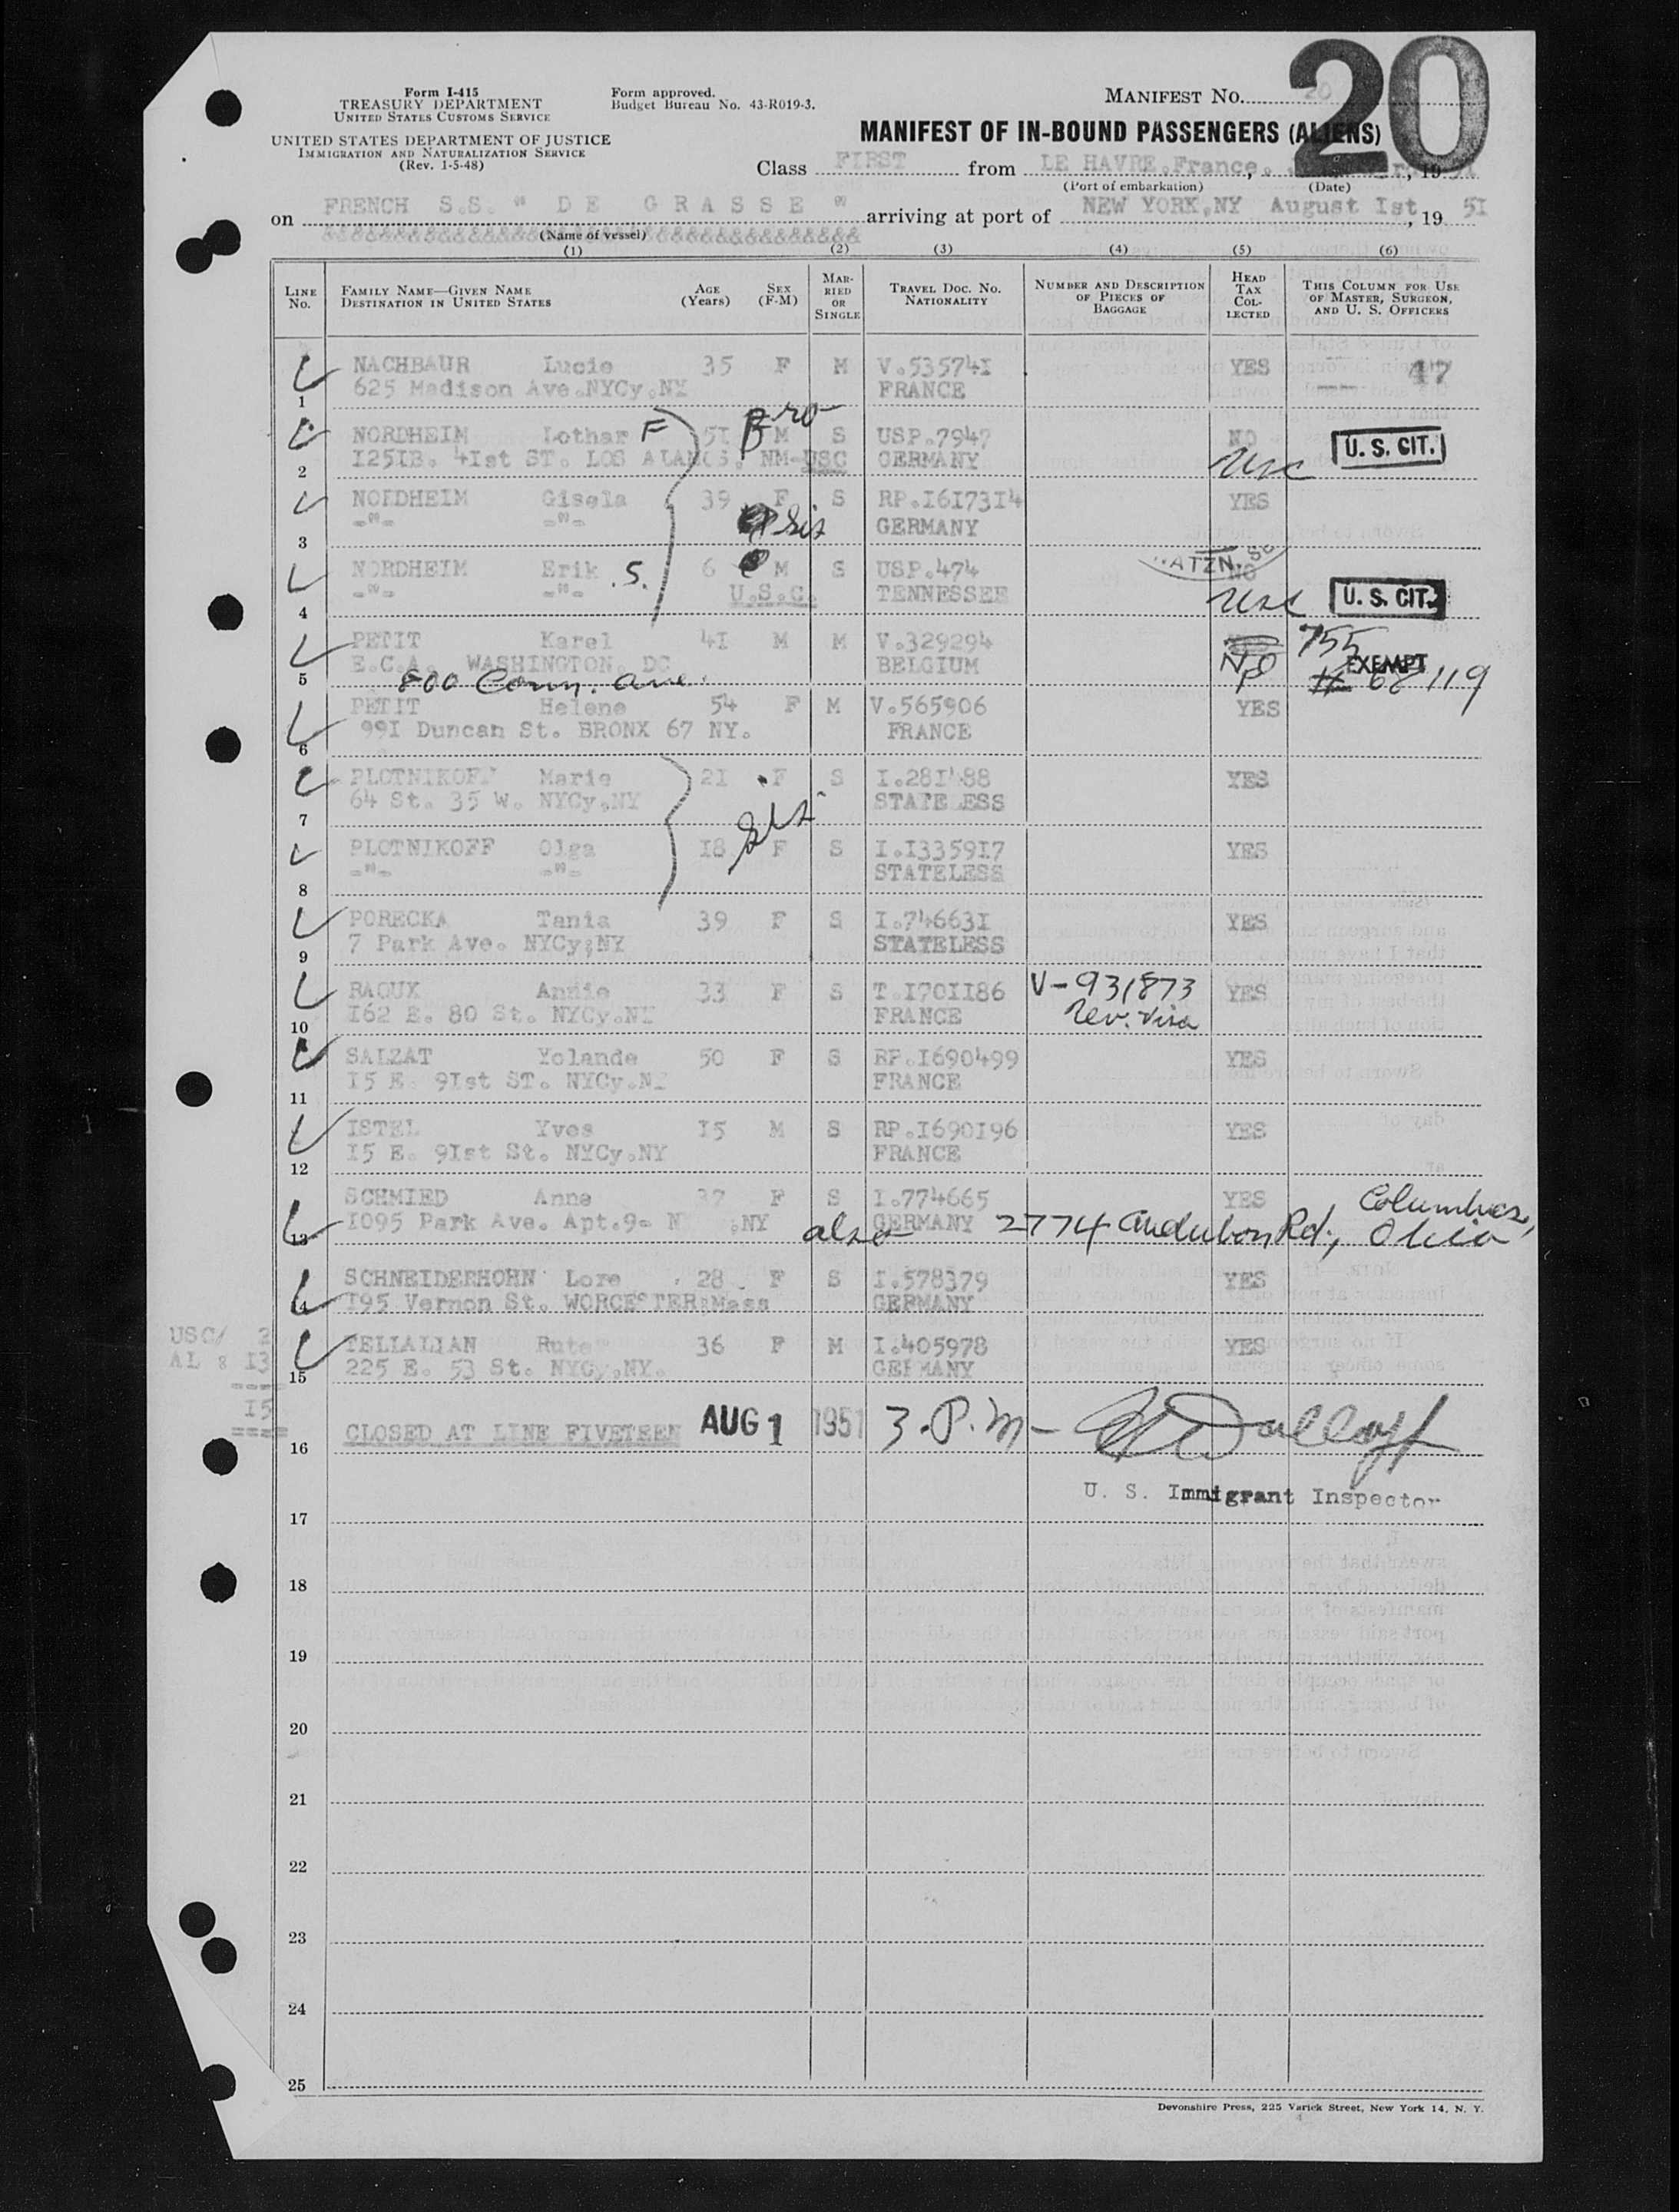 20
Form I-415
TREASURY DEPARTMENT
UNITED STATES CUSTOMS SERVICE
Form approved.
Budget Bureau No. 43-R019-3.
MANIFEST NO.
UNITED STATES DEPARTMENT OF JUSTICE
IMMIGRATION AND NATURALIZATION SERVICE
(Rev. 1-5-48)
MANIFEST OF IN-BOUND PASSENGERS (ALIENS)
Class FIRST from LE HAVRE.France. , 19 51
(Port of embarkation) (Date)
on FRENCH S.S. " DE GRASSE " arriving at port of NEW YORK,NY August Ist , 19 5I
(Name of vessel)
(1) (2) (3) (4) (5) (6)
LINE No. FAMILY NAME—GIVEN NAME DESTINATION IN UNITED STATES AGE (Years) SEX (F-M) MARRIED OR SINGLE TRAVEL DOC. NO. NATIONALITY NUMBER AND DESCRIPTION OF PIECES OF BAGGAGE HEAD TAX COLLECTED THIS COLUMN FOR USE OF MASTER, SURGEON, AND U. S. OFFICERS
NACHBAUR Lucie 35 F M V.53574I YES 47
1 625 Madison Ave.NYCy.NY FRANCE
NORDHEIM Lothar F 5I M Bro S USP.7947 NO U. S. CIT.
2 I25IB. 4Ist ST. LOS ALAMOS. NM-USC GERMANY usc
NORDHEIM Gisela 39 F S RP.I6I73I4 YES
3 -"- -"- sis GERMANY
NORDHEIM Erik .S. 6 M S USP.474 NATZN. NO
4 -"- -"- U.S.C. TENNESSEE usc U. S. CIT.
PETIT Karel 4I M M V.329294 755
5 E.C.A. WASHINGTON. DC BELGIUM NO EXEMPT
800 Conn. ave. # 68119
PETIT Helene 54 F M V.565906 YES
6 99I Duncan St. BRONX 67 NY. FRANCE
PLOTNIKOFF Marie 2I F S I.28I488 YES
7 64 St. 35 W. NYCy.NY STATELESS
sis
PLOTNIKOFF Olga I8 F S I.I3359I7 YES
8 -"- -"- STATELESS
PORECKA Tania 39 F S I.74663I YES
9 7 Park Ave. NYCy;NY STATELESS
RAOUX Annie 33 F S T.I70II86 V-931873 YES
10 I62 E. 80 St. NYCy.NY FRANCE Rev. Visa
SALZAT Yolande 50 F S RP.I690499 YES
11 I5 E. 9Ist ST. NYCy.NY FRANCE
ISTEL Yves I5 M S RP.I690I96 YES
12 I5 E. 9Ist St. NYCy.NY FRANCE
SCHMIED Anne 37 F S I.774665 YES
13 I095 Park Ave. Apt.9- NY .NY GERMANY also 2774 Audubon Rd., Columbus, Ohio
SCHNEIDERHOHN Lore 28 F S I.578379 YES
14 I95 Vernon St. WORCESTER:Mass GERMANY
USC/ 2
TELIALIAN Rute 36 F M I.405978 YES
AL : I3
15 225 E. 53 St. NYCy.NY. GERMANY
I5
16 CLOSED AT LINE FIVETEEN AUG 1 1951 3.P.M-
U. S. Immigrant Inspector
17
18
19
20
21
22
23
24
25
Devonshire Press, 225 Varick Street, New York 14, N. Y.